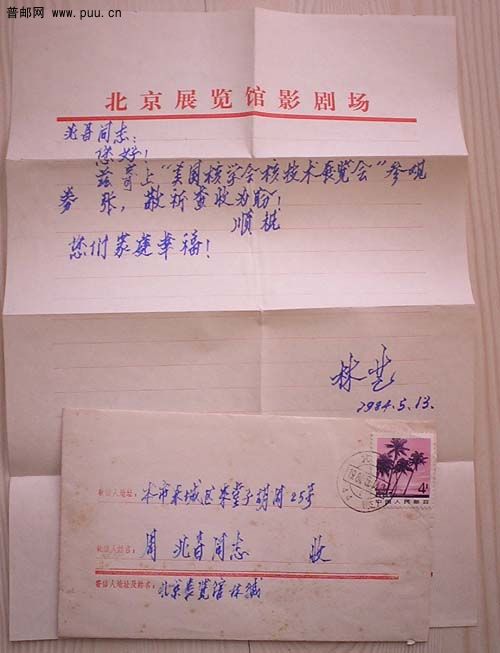 普邮网 www.puu.cn
北京展览馆影剧场
兆春同志:
您好!
兹寄上"美国核学会核技术展览会"参观
券 张, 敬祈查收为盼!
顺祝
您们家庭幸福!
林
1984.5.13.
4分
中国人民邮政
收信人地址: 本市东城区 堂子胡同25号
收信人姓名: 周兆春同志 收
寄信人地址及姓名: 北京展览馆 林